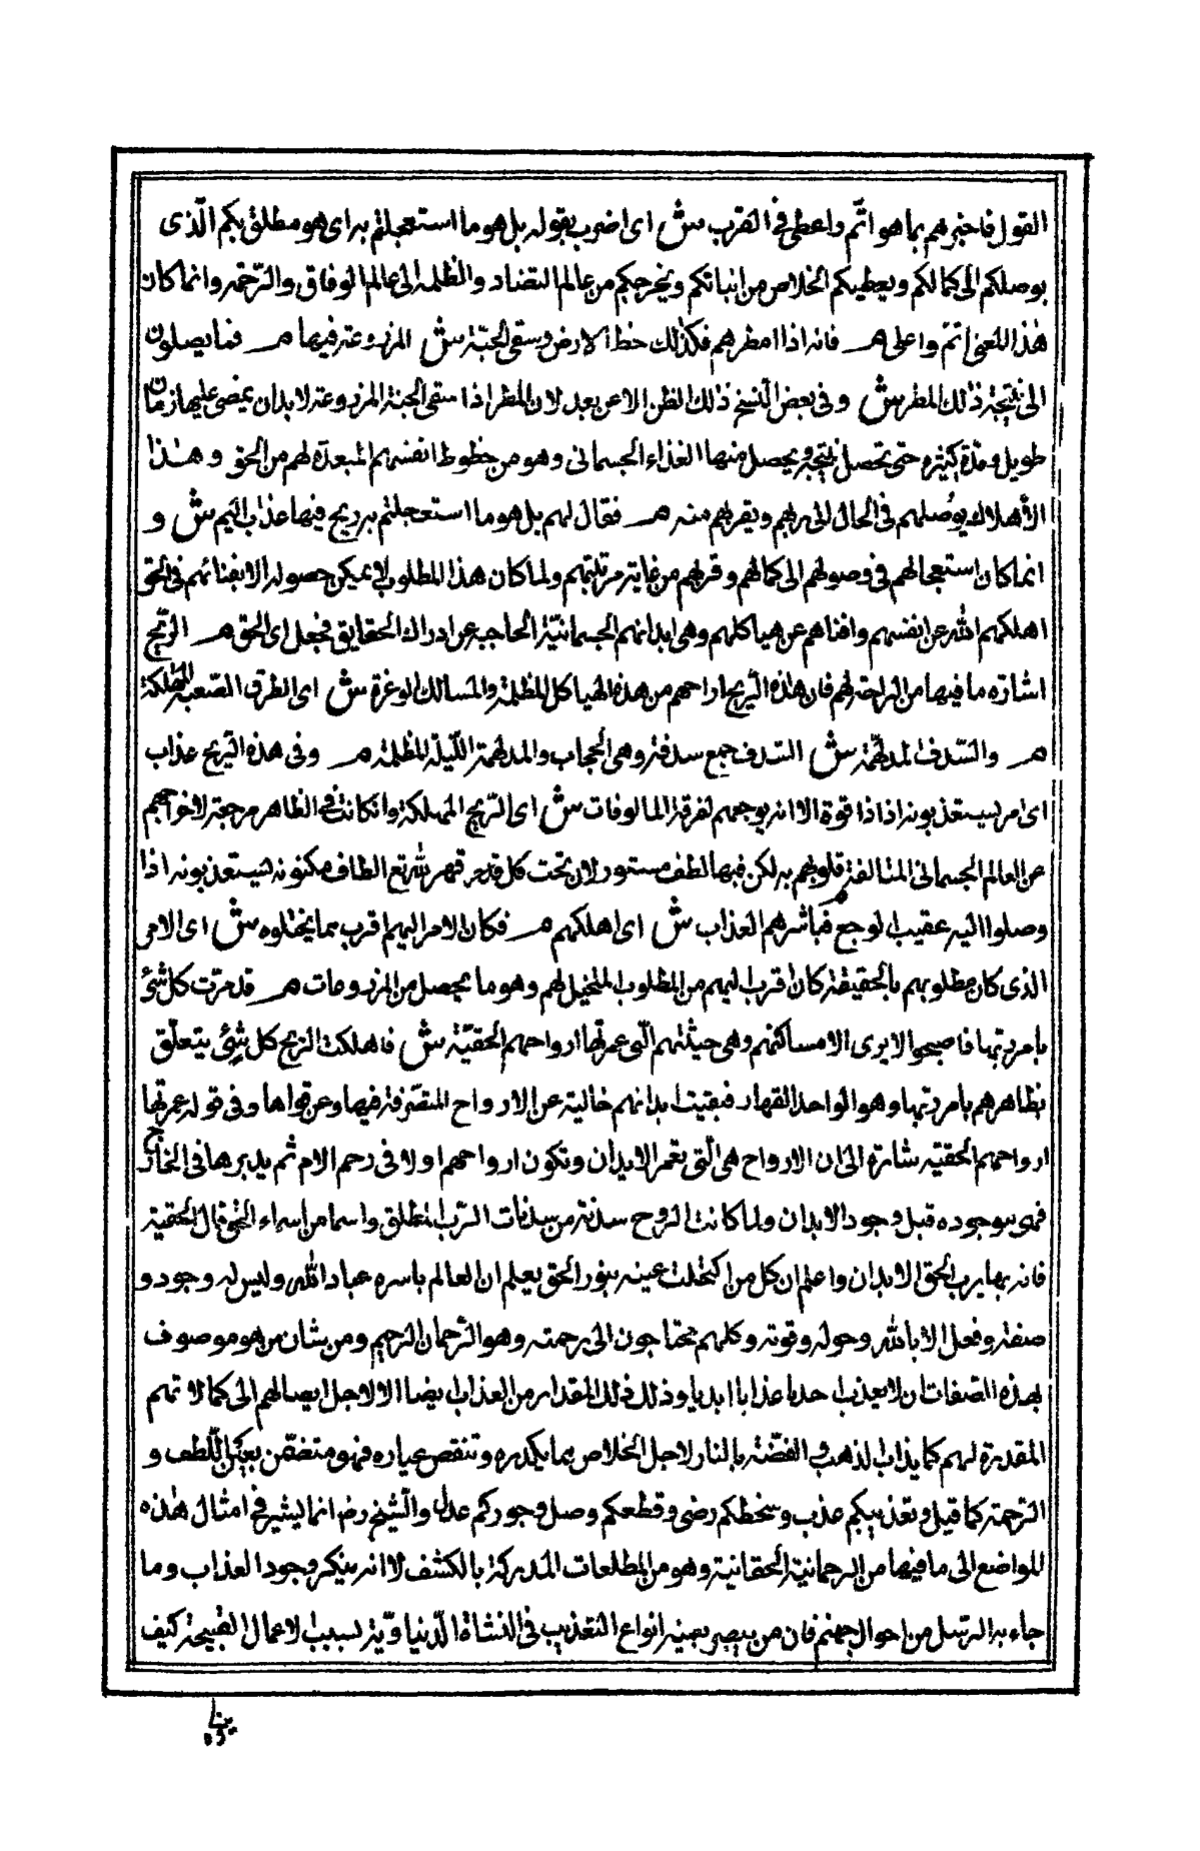 القول فاخبرهم بما هو اتّم واعطى فى القرب ش اى اضرب بقوله بل هو ما استعجلتم به اى هو مطلق بكم الّذى
يوصلكم الى كمالكم ويعطيكم الخلاص من انياتكم ويخرجكم من عالم التضاد والظلمة الى عالم الوفاق والرّحمة وانما كان
هذا المعنى اتمّ واعلى م فانه اذا امطرهم فكذلك حظ الارض وسقى الحبّة ش المزروعة فيها م فما يصلون
الى نتيجة ذلك المطر ش وفى بعض النّسخ ذلك الظن الا عن بعد لان المطر اذا سقى الحبة المزروعة لابد ان يمضى عليها زمان
طويل ومدة كثيرة حتى تحصل نتيجة ويحصل منها الغذاء الجسمانى وهو من حظوظ انفسهم المبعدة لهم من الحق وهذا
الأهلاك يوُصلهم فى الحال الى ربهم ويقربهم منه م فقال لهم بل هو ما استعجلتم به ريح فيها عذاب اليم ش و
انما كان استعجالهم فى وصولهم الى كمالهم وقربهم من غاية مرتبتهم ولما كان هذا المطلوب لا يمكن حصوله الا بفنائهم فى الحق
اهلكهم الله عن انفسهم وافناهم عن هياكلهم وهى ابدانهم الجسمانيّة الحاجبة عن ادراك الحقايق فجعل اى الحق م الرّيح
اشارة ما فيها من الراحة لهم فان هذه الريح اراحهم من هذه الهياكل المظلمة والمسالك الوعرة ش اى الطرق الصّعبة المهلكة
م والسّدف المدلهمّة ش السّدف جمع سدفة وهى الحجاب والمدلهمّة اللّيلة المظلمة م وفى هذه الريح عذاب
اى امر يستعذبونه اذا ذاقوة الا انه يوجعهم لفرقة المالوفات ش اى الرّيح المهلكة وان كانت فى الظاهر موجعة لاخراجهم
عن العالم الجسمانى المتالفة قلوبهم به لكن فيها لطف مستور لان تحت كل قهر لله تع الطاف مكنونة يستعذبونه اذا
وصلوا اليه عقيب الوجع م فباشرهم العذاب ش اى اهلكهم م فكان الامر اليهم اقرب مما يخيلوه ش اى الامر
الذى كان مطلوبهم بالحقيقة كان اقرب اليهم من المطلوب المتخيل لهم وهو ما يحصل من المزروعات م فدمرت كل شئ
بامر ربّها فاصبحوا لا يرى الا مساكنهم وهى جثتهم الّتى عمرتها ارواحهم الحقيّة ش فاهلكت الريح كل شئ يتعلّق
بظاهرهم بامر ربّها وهو الواحد القهار فبقيت ابدانهم خالية عن الارواح المتصّرفة فيها وعن قواها وفى قوله عمرتها
ارواحهم الحقيّة اشارة الى ان الارواح هى الّتى تعمر الابدان وتكون ارواحهم اولا فى رحم الام ثم يدبرها فى الخارج
فهى موجودة قبل وجود الابدان ولما كانت الروح سدنة من سدنات الرّب المطلق واسما من اسماء الحق قال الحقية
فانه بها يرب الحق الابدان واعلم ان كل من اكتحلت عينه بنور الحق يعلم ان العالم باسره عباد الله وليس له وجود و
صفة وفعل الا بالله وحوله وقوته وكلهم محتاجون الى رحمته وهو الرّحمان الرّحيم ومن شان من هو موصوف
بهذه الصّفات ان لا يعذب احدا عذابا ابديا وذلك ذلك المقدار من العذاب ايضا الا لاجل ايصالهم الى كمالاتهم
المقدرة لهم كما يذاب الذهب والفضّة بالنار لاجل الخلاص مما يكدره وتنقص عياره فهو متضمّن بعين اللّطف و
الرّحمة كما قيل وتعذيبكم عذب وسخطكم رضى وقطعكم وصل وجوركم عدل والشّيخ رض انما يشير فى امثال هذه
للواضع الى ما فيها من الرحمانية الحقانية وهو من المطلعات المدركة بالكشف لا انه ينكر وجود العذاب وما
جاء به الرسل من احوال جهنم فان من يبصر بعينه انواع التعذيب فى النشاة الدّنياويّة بسبب الاعمال القبيحة كيف